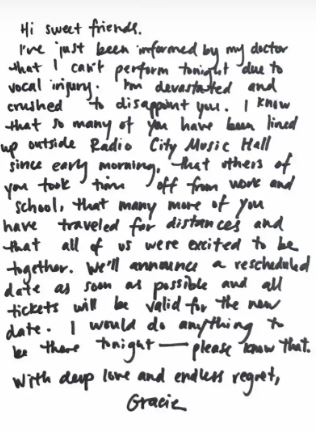 Hi sweet friends.
I've just been informed by my doctor
that I can't perform tonight due to
vocal injury. I'm devastated and
crushed to disappoint you. I know
that so many of you have been lined
up outside Radio City Music Hall
since early morning, that others of
you took time off from work and
school, that many more of you
have traveled far distances and
that all of us were excited to be
together. We'll announce a rescheduled
date as soon as possible and all
tickets will be valid for the new
date. I would do anything to
be there tonight — please know that.
With deep love and endless regret,
Gracie